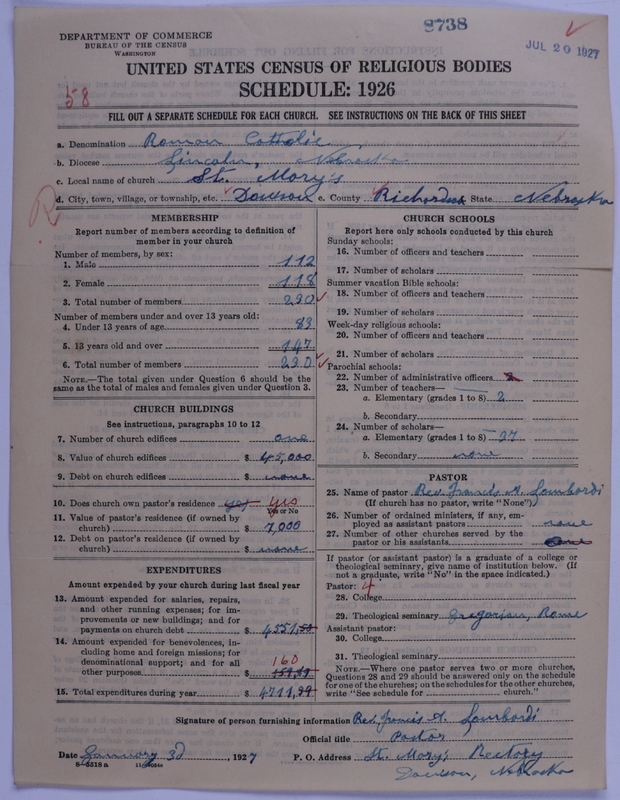 8738
DEPARTMENT OF COMMERCE
BUREAU OF THE CENSUS
WASHINGTON
JUL 20 1927
UNITED STATES CENSUS OF RELIGIOUS BODIES
SCHEDULE: 1926
58
FILL OUT A SEPARATE SCHEDULE FOR EACH CHURCH. SEE INSTRUCTIONS ON THE BACK OF THIS SHEET
a. Denomination Roman Catholic
b. Diocese Lincoln, Nebraska
c. Local name of church St. Mary's
d. City, town, village, or township, etc. Dawson e. County Richardson State Nebraska
R
MEMBERSHIP
Report number of members according to definition of member in your church
Number of members, by sex:
1. Male 112
2. Female 118
3. Total number of members 230
Number of members under and over 13 years old:
4. Under 13 years of age 83
5. 13 years old and over 147
6. Total number of members 230
NOTE.—The total given under Question 6 should be the
same as the total of males and females given under Question 3.
CHURCH BUILDINGS
See instructions, paragraphs 10 to 12
7. Number of church edifices one
8. Value of church edifices $ 45,000
9. Debt on church edifices $ none
10. Does church own pastor's residence yes yes
Yes or No
11. Value of pastor's residence (if owned by
church) $ 7,000
12. Debt on pastor's residence (if owned by
church) $ none
EXPENDITURES
Amount expended by your church during last fiscal year
13. Amount expended for salaries, repairs,
and other running expenses; for im-
provements or new buildings; and for
payments on church debt $ 4551,
14. Amount expended for benevolences, in-
cluding home and foreign missions; for
denominational support; and for all
other purposes $ 160
15. Total expenditures during year $ 4711,
CHURCH SCHOOLS
Report here only schools conducted by this church
Sunday schools:
16. Number of officers and teachers
17. Number of scholars
Summer vacation Bible schools:
18. Number of officers and teachers
19. Number of scholars
Week-day religious schools:
20. Number of officers and teachers
21. Number of scholars
Parochial schools:
22. Number of administrative officers 2
23. Number of teachers—
a. Elementary (grades 1 to 8) 2
b. Secondary
24. Number of scholars—
a. Elementary (grades 1 to 8) 27
b. Secondary none
PASTOR
25. Name of pastor Rev. Francis A. Lombardi
(If church has no pastor, write "None")
26. Number of ordained ministers, if any, em-
ployed as assistant pastors none
27. Number of other churches served by the
pastor or his assistants
If pastor (or assistant pastor) is a graduate of a college or
theological seminary, give name of institution below. (If
not a graduate, write "No" in the space indicated.)
Pastor: 4
28. College
29. Theological seminary Gregorian, Rome
Assistant pastor:
30. College
31. Theological seminary
NOTE.—Where one pastor serves two or more churches,
Questions 28 and 29 should be answered only on the schedule
for one of the churches; on the schedules for the other churches,
write "See schedule for church."
Signature of person furnishing information Rev. Francis A. Lombardi
Official title Pastor
Date January 3d, 1927 P. O. Address St. Mary's Rectory
Dawson, Nebraska